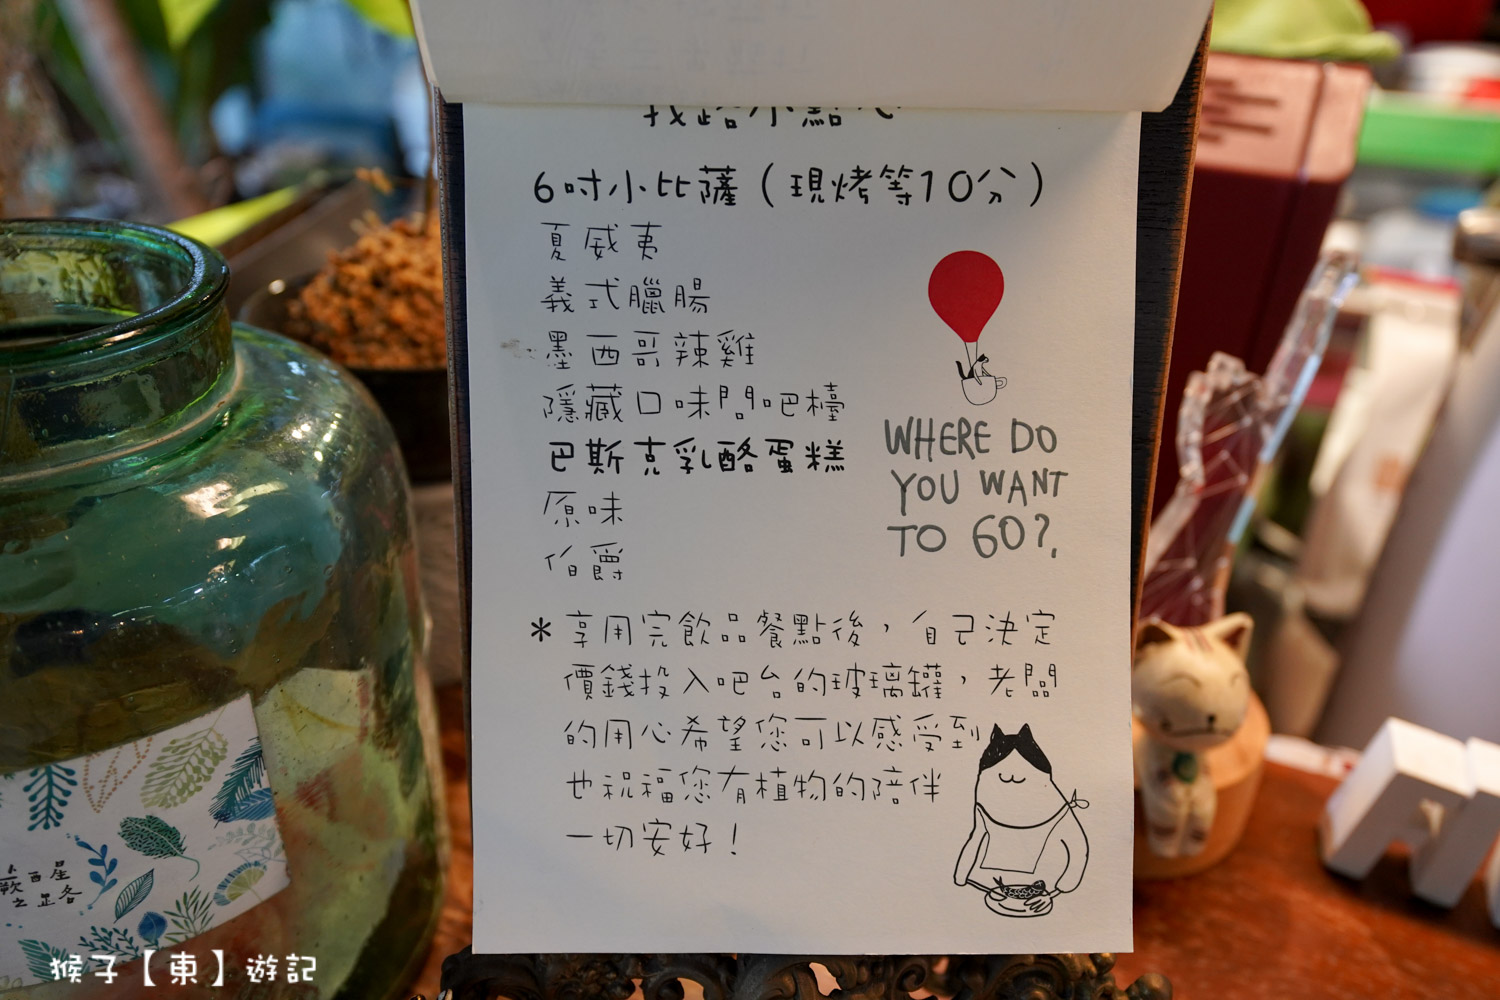 找路小點心
6吋小比薩（現烤等10分）
夏威夷
義式臘腸
墨西哥辣雞
隱藏口味問吧檯
巴斯克乳酪蛋糕
原味
伯爵
WHERE DO
YOU WANT
TO GO?
*享用完飲品餐點後，自己決定
價錢投入吧台的玻璃罐，老闆
的用心希望您可以感受到
也祝福您有植物的陪伴
一切安好！
猴子【東】遊記